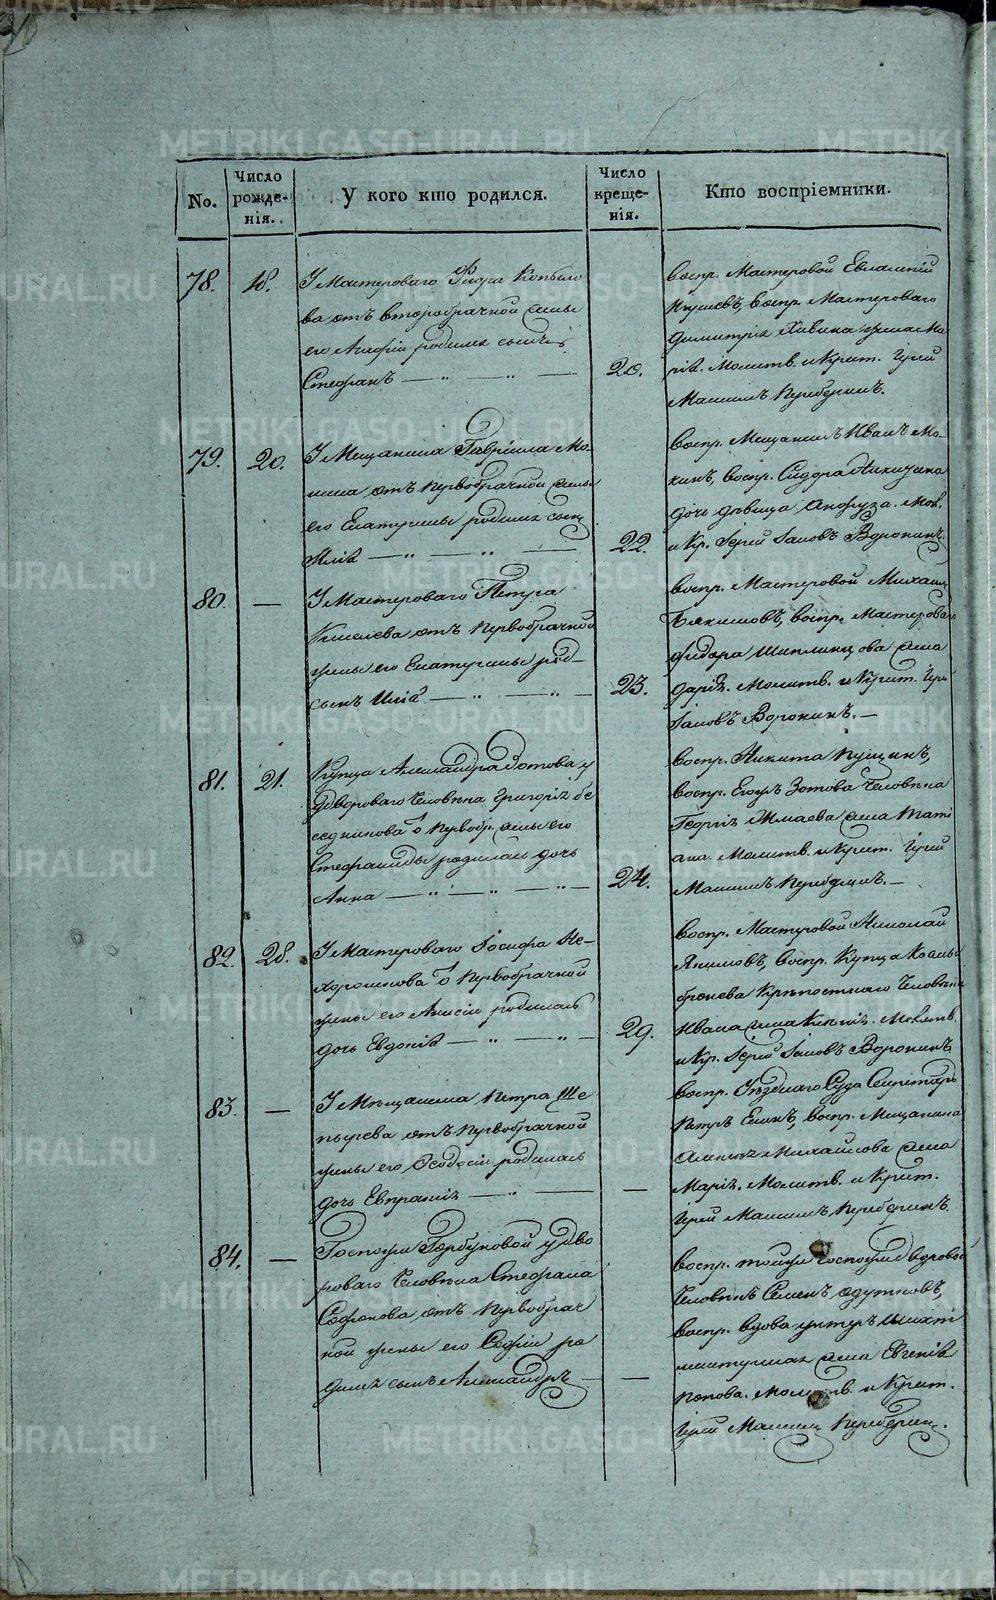 No.
Число рожде-нія.
У кого кто родился.
Число креще-нія.
Кто воспріемники.
78.
18.
У Мастероваго Федора Копыло
ва отъ второбрачной жены
его Агафіи родился сынъ
Стефанъ
20.
воспр. Мастеровой Евлампій
воспр. Мастероваго
Димитрія жена Ма
рія. Молитв. и Крит. Іерей
Максимъ
79.
20.
У Мещанина Гавріила Мо-
кина отъ первобрачной жены
его Екатерины родился сынъ
Илія
22.
воспр. Мещанинъ Иванъ Мо-
кинъ, воспр. Сидора Никитина
дочь дѣвица Анфуза. Мол.
и Кр. Іерей Іаковъ Воронинъ.
80.
У Мастероваго Петра
Киселева отъ первобрачной
жены его Екатерины род-
сынъ Илія
23.
воспр. Мастеровой Михаилъ
воспр. Мастероваго
Федора жена
Дарія. Молитв. и Крит. Іерей
Іаковъ Воронинъ.
81.
21.
Купца Александра Зотова у
дворового человѣка Григорія Бе
седникова о первобр. жены его
Стефаниды родилась дочь
Анна
24.
воспр. Никита Кущинъ,
воспр. Егора Зотова человѣка
Георгія жена Тати
ана. Молитв. и Крит. Іерей
Максимъ
82.
28.
У Мастероваго Іосифа Не-
хорошкова о первобрачной
жены его Анисіи родилась
дочь Евдокія
29.
воспр. Мастеровой Николай
Якимовъ, воспр. Купца
крѣпостнаго человѣка
Ивана жена Молитв.
и Кр. Іерей Іаковъ Воронинъ
83.
У Мѣщанина Петра Ше
пырева отъ первобрачной
жены его Ѳеодосіи родилась
дочь Евпраксія
воспр. Уѣзднаго Суда Секретарь
Петръ воспр. Мещанина
Алексѣя Михайлова жена
Марія. Молитв. и Крит.
Іерей Максимъ
84.
Госпожи Горбуновой у дво
роваго человѣка Стефана
Софонова отъ первобрач
ной жены его Софіи ро
дился сынъ Александръ
воспр. тойже госпожи дворовой
человѣкъ Семенъ
воспр. вдова унтеръ
жена Евгенія
Попова. Молитв. и Крит.
Іерей Максимъ
METRIKI.GASO-URAL.RU